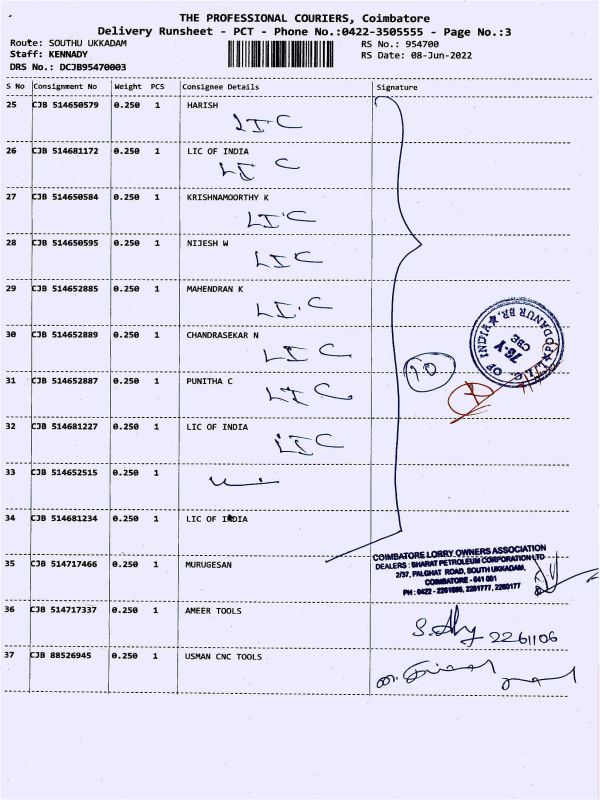 THE PROFESSIONAL COURIERS, Coimbatore
Delivery Runsheet - PCT - Phone No.:0422-3505555 - Page No.:3
Route: SOUTHU UKKADAM
RS No.: 954700
Staff: KENNADY
RS Date: 08-Jun-2022
DRS No.: DCJB95470003
S No Consignment No Weight PCS Consignee Details Signature
25 CJB 514650579 0.250 1 HARISH
LIC
26 CJB 514681172 0.250 1 LIC OF INDIA
LIC
27 CJB 514650584 0.250 1 KRISHNAMOORTHY K
LIC
28 CJB 514650595 0.250 1 NIJESH W
LIC
29 CJB 514652885 0.250 1 MAHENDRAN K
LIC
30 CJB 514652889 0.250 1 CHANDRASEKAR N
LIC
31 CJB 514652887 0.250 1 PUNITHA C
LIC
32 CJB 514681227 0.250 1 LIC OF INDIA
LIC
10
L.I.C. OF INDIA
PODANUR BR.
76-Y
CBE
33 CJB 514652515 0.250 1
34 CJB 514681234 0.250 1 LIC OF INDIA
35 CJB 514717466 0.250 1 MURUGESAN
COIMBATORE LORRY OWNERS ASSOCIATION
DEALERS : BHARAT PETROLEUM CORPORATION LTD
2/37, PALGHAT ROAD, SOUTH UKKADAM,
COIMBATORE - 641 001
PH : 0422 - 2261666, 2261777, 2260177
36 CJB 514717337 0.250 1 AMEER TOOLS
2261106
37 CJB 88526945 0.250 1 USMAN CNC TOOLS